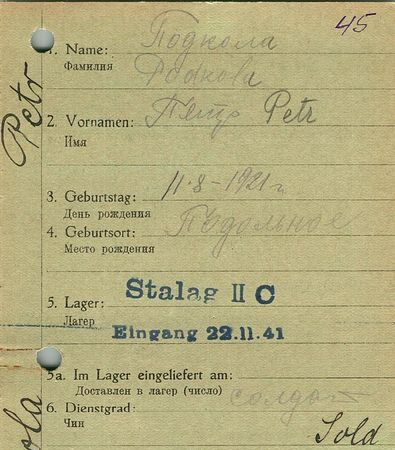 45
1. Name: Подкола
Фамилия
Petr
2. Vornamen: Петр Petr
Имя
3. Geburtstag: 11·8-1921 г.
День рождения
4. Geburtsort: Подольное
Место рождения
5. Lager: Stalag II C
Лагер
Eingang 22.11.41
5a. Im Lager eingeliefert am:
Доставлен в лагер (число)
6. Dienstgrad: солдат
Чин
Sold